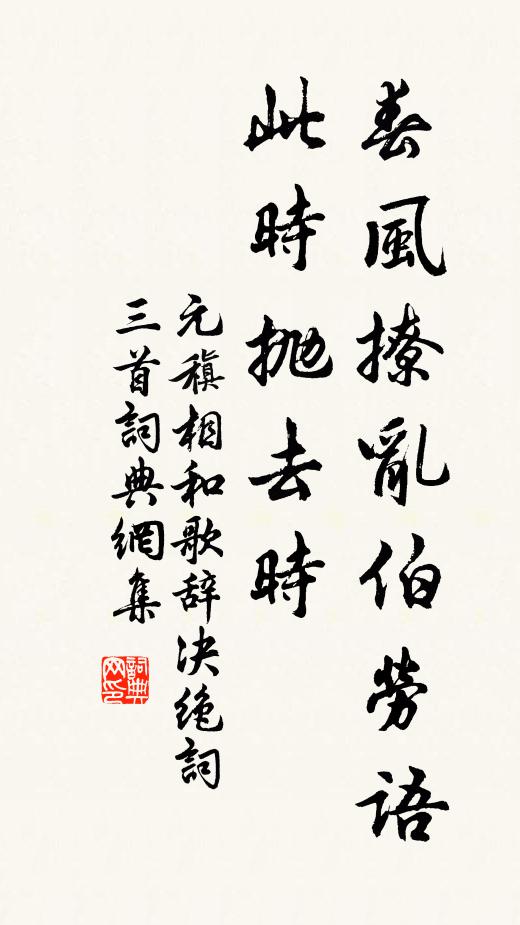 春風撩亂伯勞語
此時拋去時
元稹相和歌辞決绝詞
三首詞典網集
詞典網印